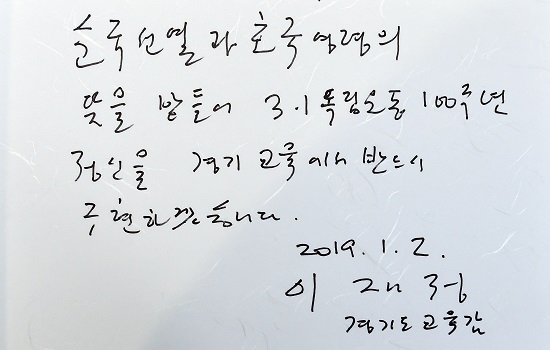 순국선열과 호국영령의
뜻을 받들어 3.1독립운동 100주년
정신을 경기교육에서 반드시
구현하겠습니다.
2019. 1. 2.
이 재 정
경기도교육감